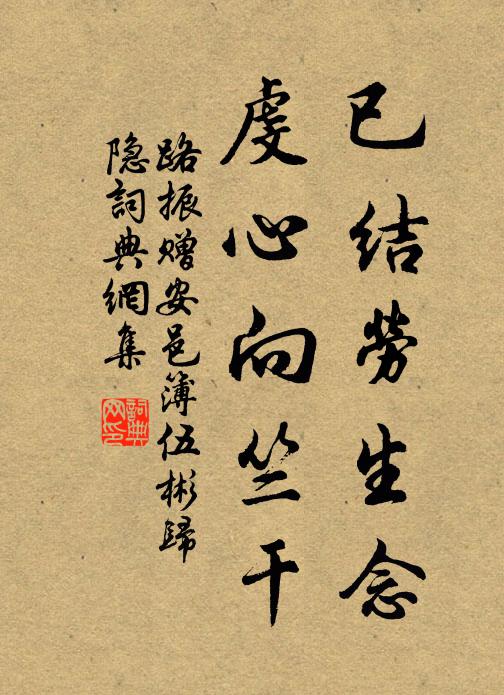 已结劳生念
虔心向竺干
路振赠安邑簿伍彬归
隐词典网集
词典
网印